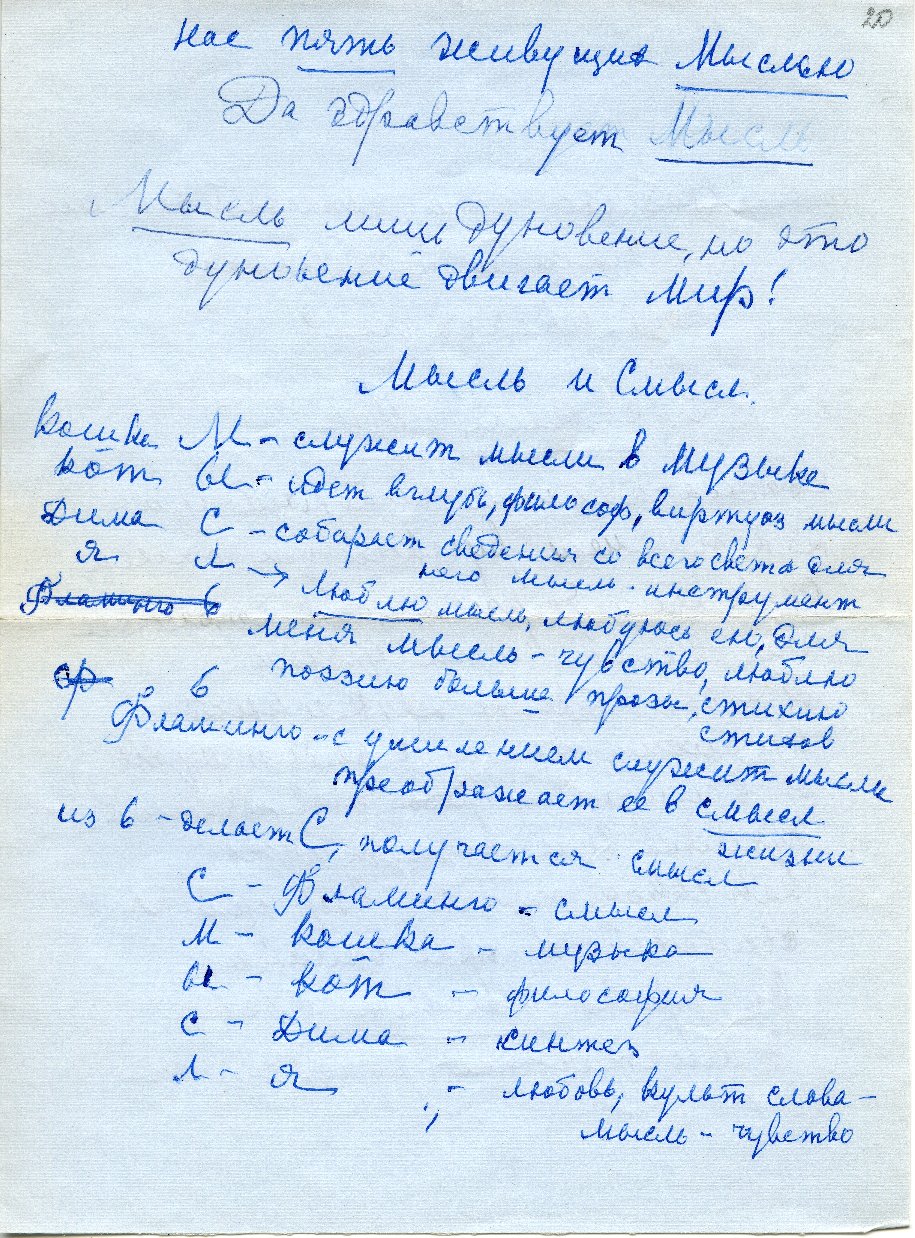 20
нас пять живущих Мыслью
Да здравствует Мысль
Мысль лишь дуновение, но это
дуновение двигает Мир!
Мысль и Смысл.
кошка М - служит мысли в музыке
кот Ы - идет вглубь, философ, виртуоз мысли
Дима С - собирает сведения со всего света для
него мысль - инструмент
Я Л → люблю мысль, любуюсь ею, для
меня мысль - чувство, люблю
Фламинго Ь
поэзию больше прозы, стихию
стихов
ф Ь
Фламинго - с умилением служит мысли
преображает ее в смысл
жизни
из Ь - делает С, получается смысл
С - Фламинго - смысл
М - кошка - музыка
Ы - кот - философия
С - Дима - синтез
Л - Я - любовь, культ слова -
мысль - чувство